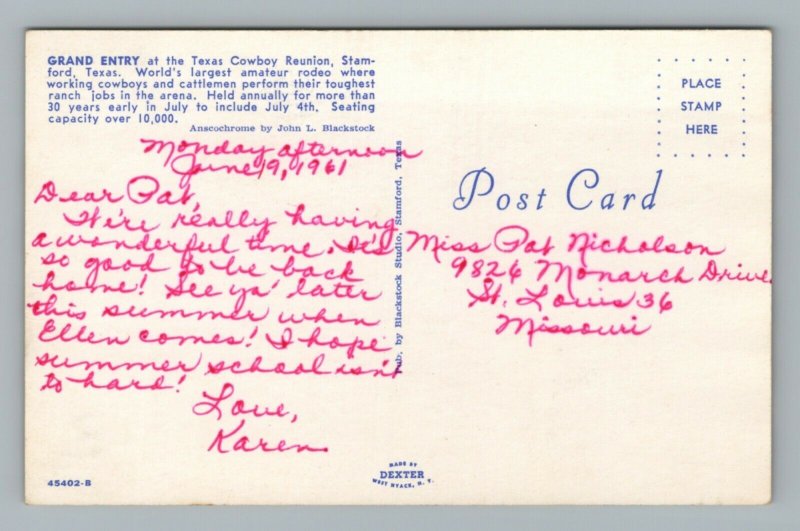 GRAND ENTRY at the Texas Cowboy Reunion, Stam-
ford, Texas. World's largest amateur rodeo where
working cowboys and cattlemen perform their toughest
ranch jobs in the arena. Held annually for more than
30 years early in July to include July 4th. Seating
capacity over 10,000.
Anscochrome by John L. Blackstock
Monday afternoon
June 19, 1961
Dear Pat,
We're really having
a wonderful time. It's
so good to be back
home! See ya' later
this summer when
Ellen comes! I hope
summer school isn't
to hard!
Love,
Karen
45402-B
Pub. by Blackstock Studio, Stamford, Texas
MADE BY
DEXTER
WEST NYACK, N. Y.
PLACE
STAMP
HERE
Post Card
Miss Pat Nicholson
9826 Monarch Drive
St. Louis 36
Missouri